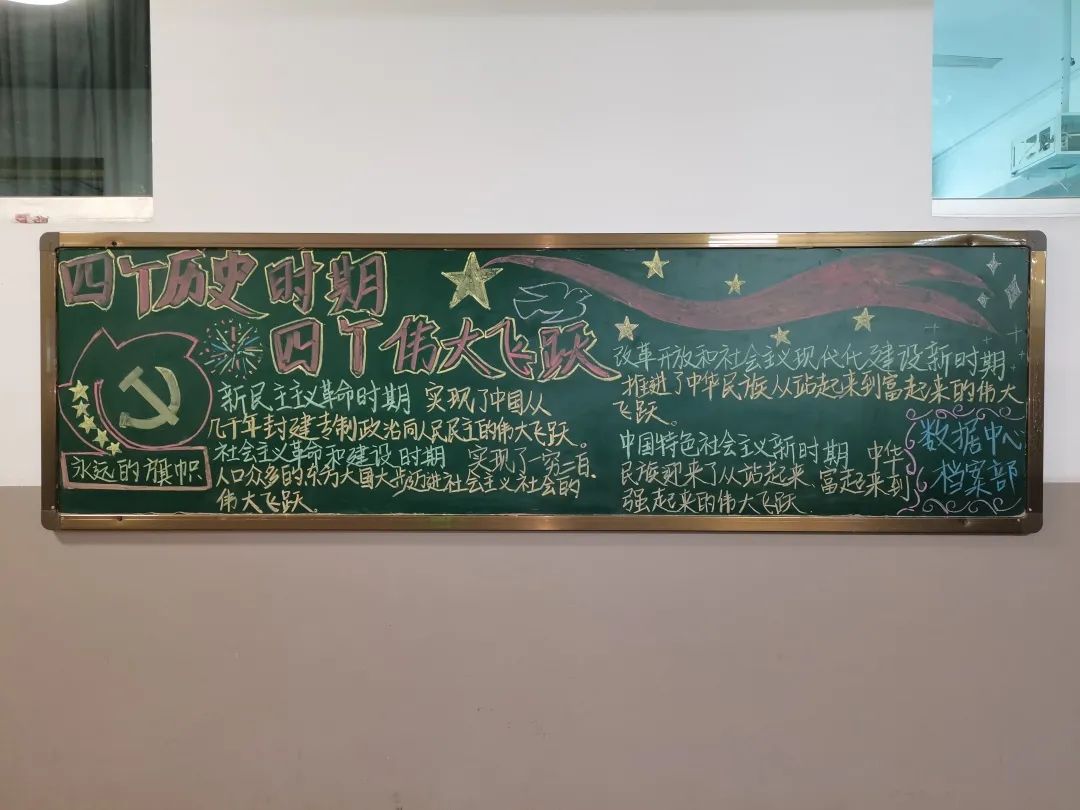 四个历史时期
四个伟大飞跃
永远的旗帜
新民主主义革命时期 实现了中国从
几千年封建专制政治向人民民主的伟大飞跃。
社会主义革命和建设时期 实现了一穷二白、
人口众多的东方大国大步迈进社会主义社会的
伟大飞跃。
改革开放和社会主义现代化建设新时期
推进了中华民族从站起来到富起来的伟大
飞跃。
中国特色社会主义新时期 中华
民族迎来了从站起来、富起来到
强起来的伟大飞跃
数据中心
档案部